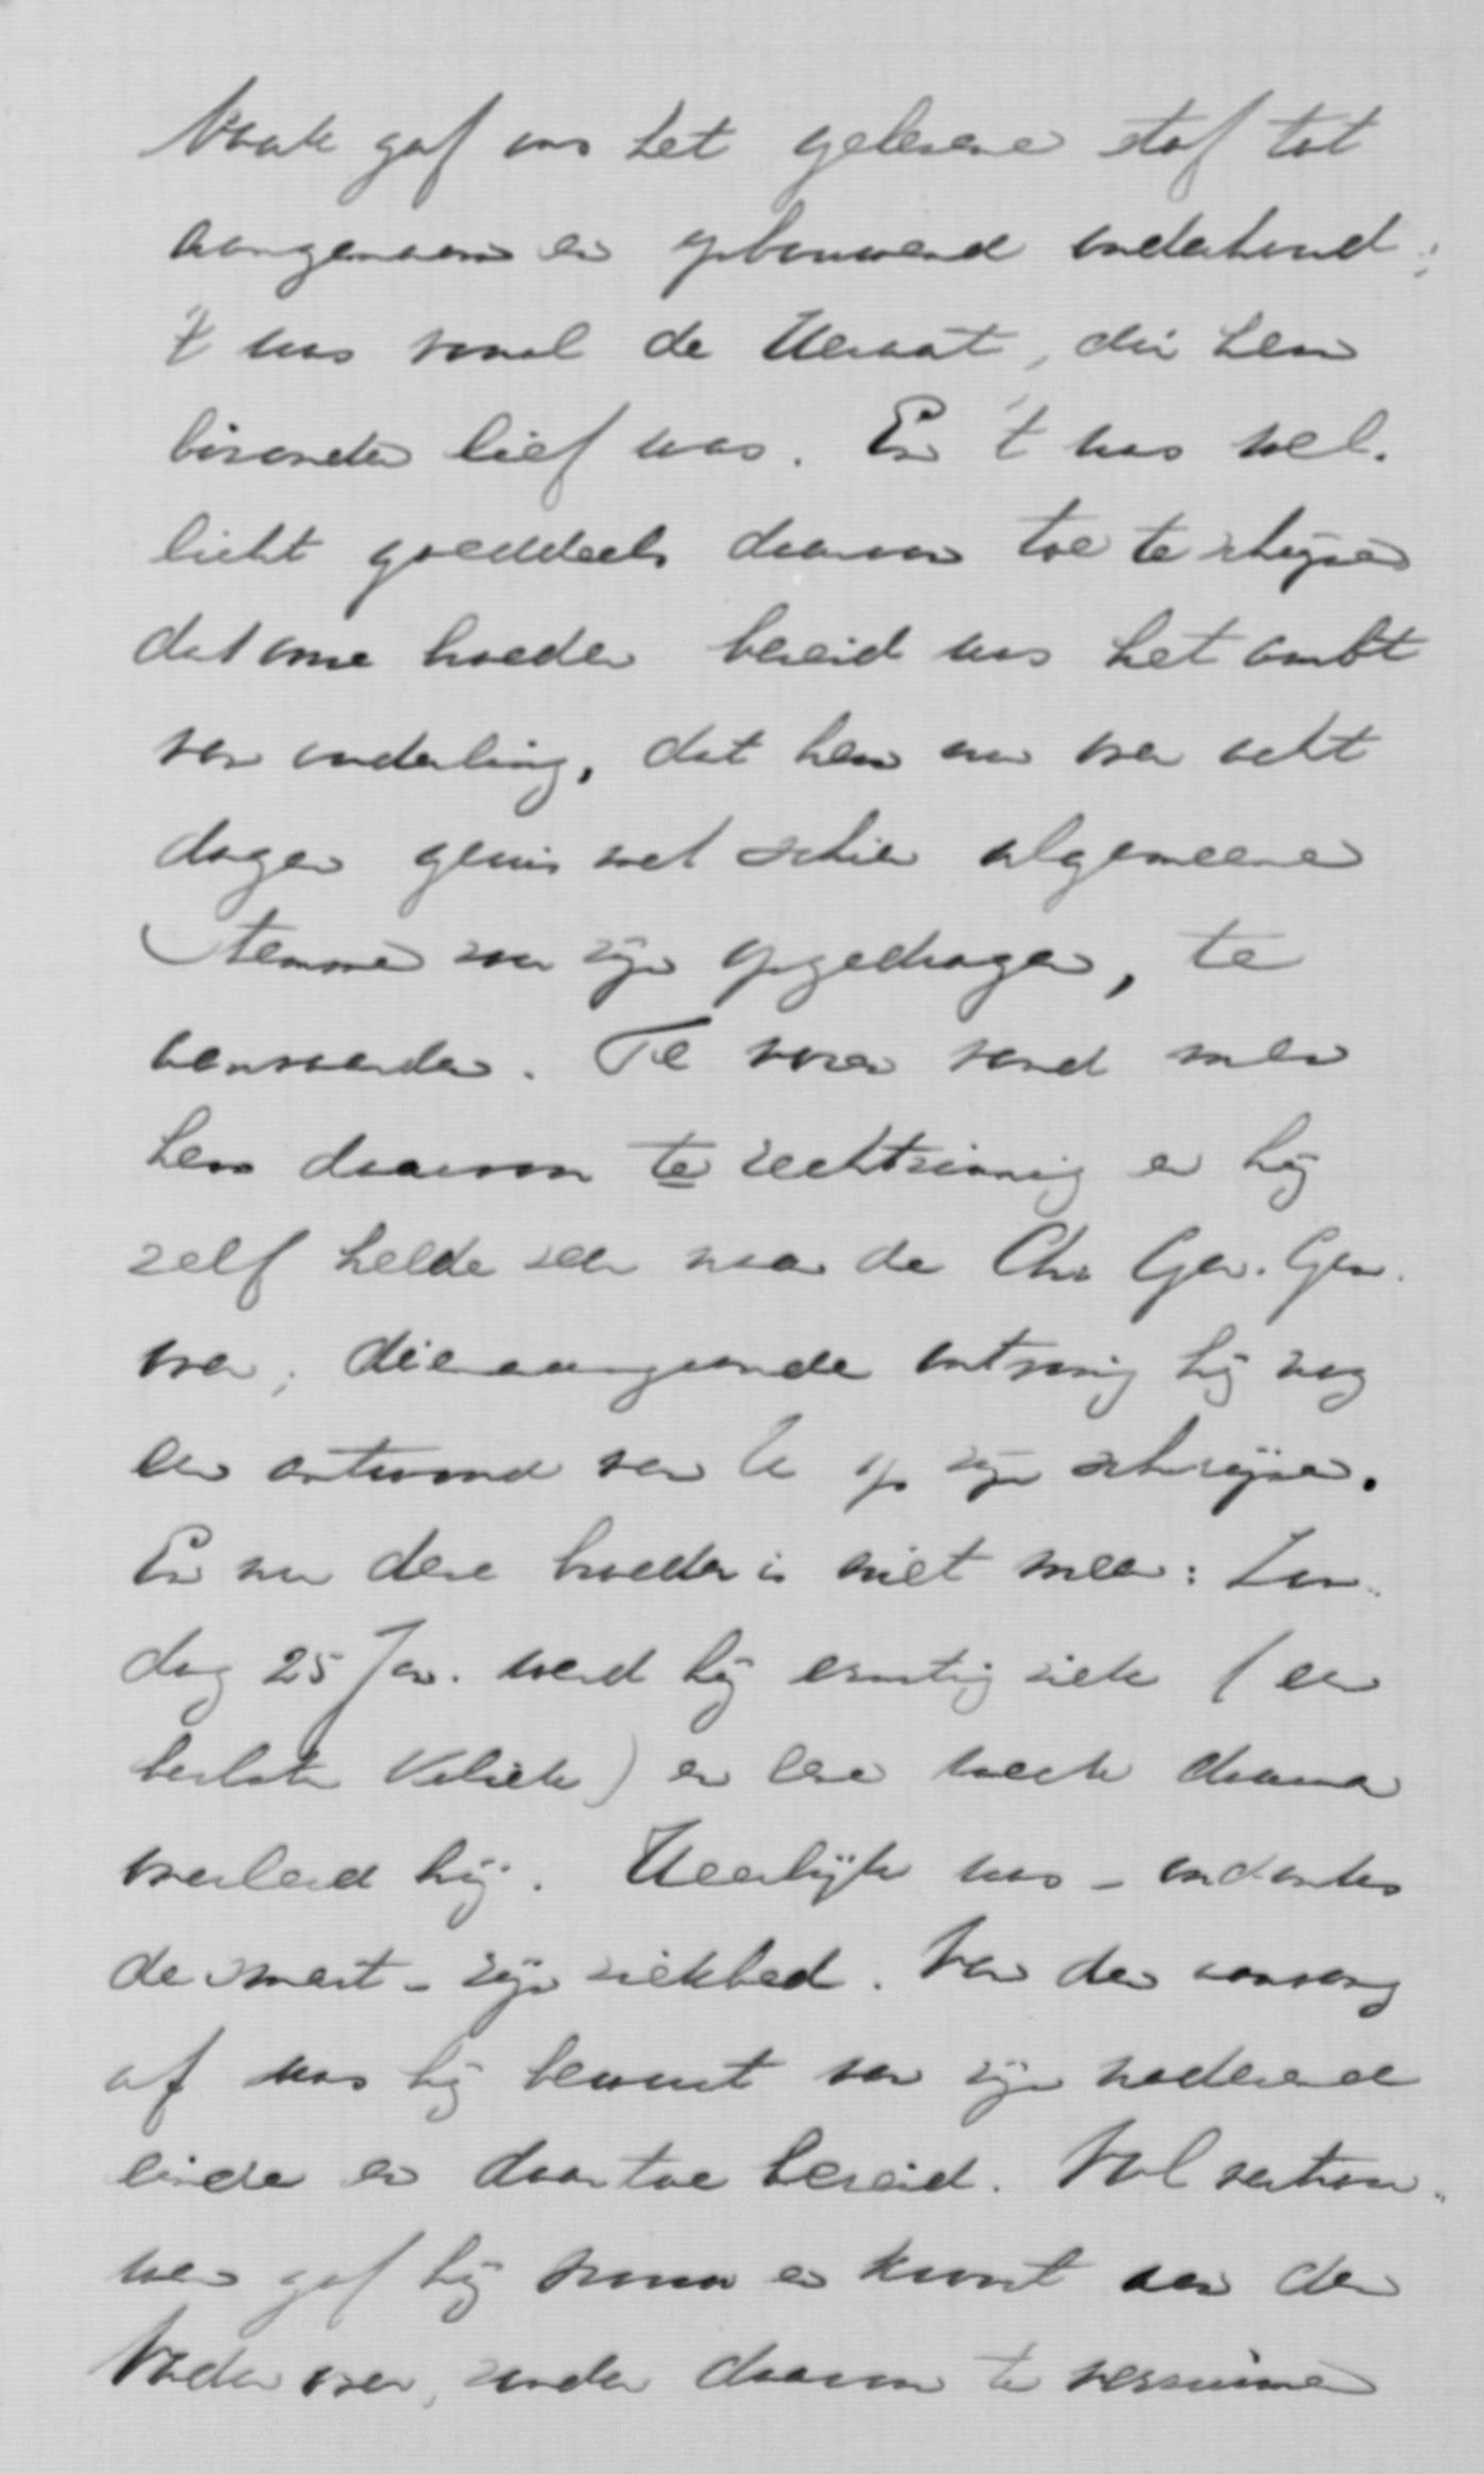 Vaak gaf ons het gelezene stof tot
aangenaam en opbouwend onderhoud;
't was vooral de Heraut, die hem
bizonder lief was. En 't was wel-
licht goeddeels daaraan toe te schrijven
dat onze broeder bereid was het ambt
van ouderling, dat hem nu over acht
dagen gewis met schier algemeene
stemmen zou zijn opgedragen, te
aanvaarden. Te voren vond men
hem daarvoor te rechtzinnig en hij
zelf helde zeer naar de Chr. Ger. Gem.
over; dienaangaande ontving hij nog
een antwoord van U op zijn schrijven.
En nu deze broeder is niet meer: Zon-
dag 25 Jan. werd hij ernstig ziek (een
koliek) en eene week daarna
overleed hij. Heerlijk was - ondanks
de smart - zijn ziekbed. Van den aanvang
af was hij bewust van zijn naderend
einde en daartoe bereid. Vol vertrou-
wen gaf hij vrouw en kroost aan den
Vader over, zonder daarom te verzuimen